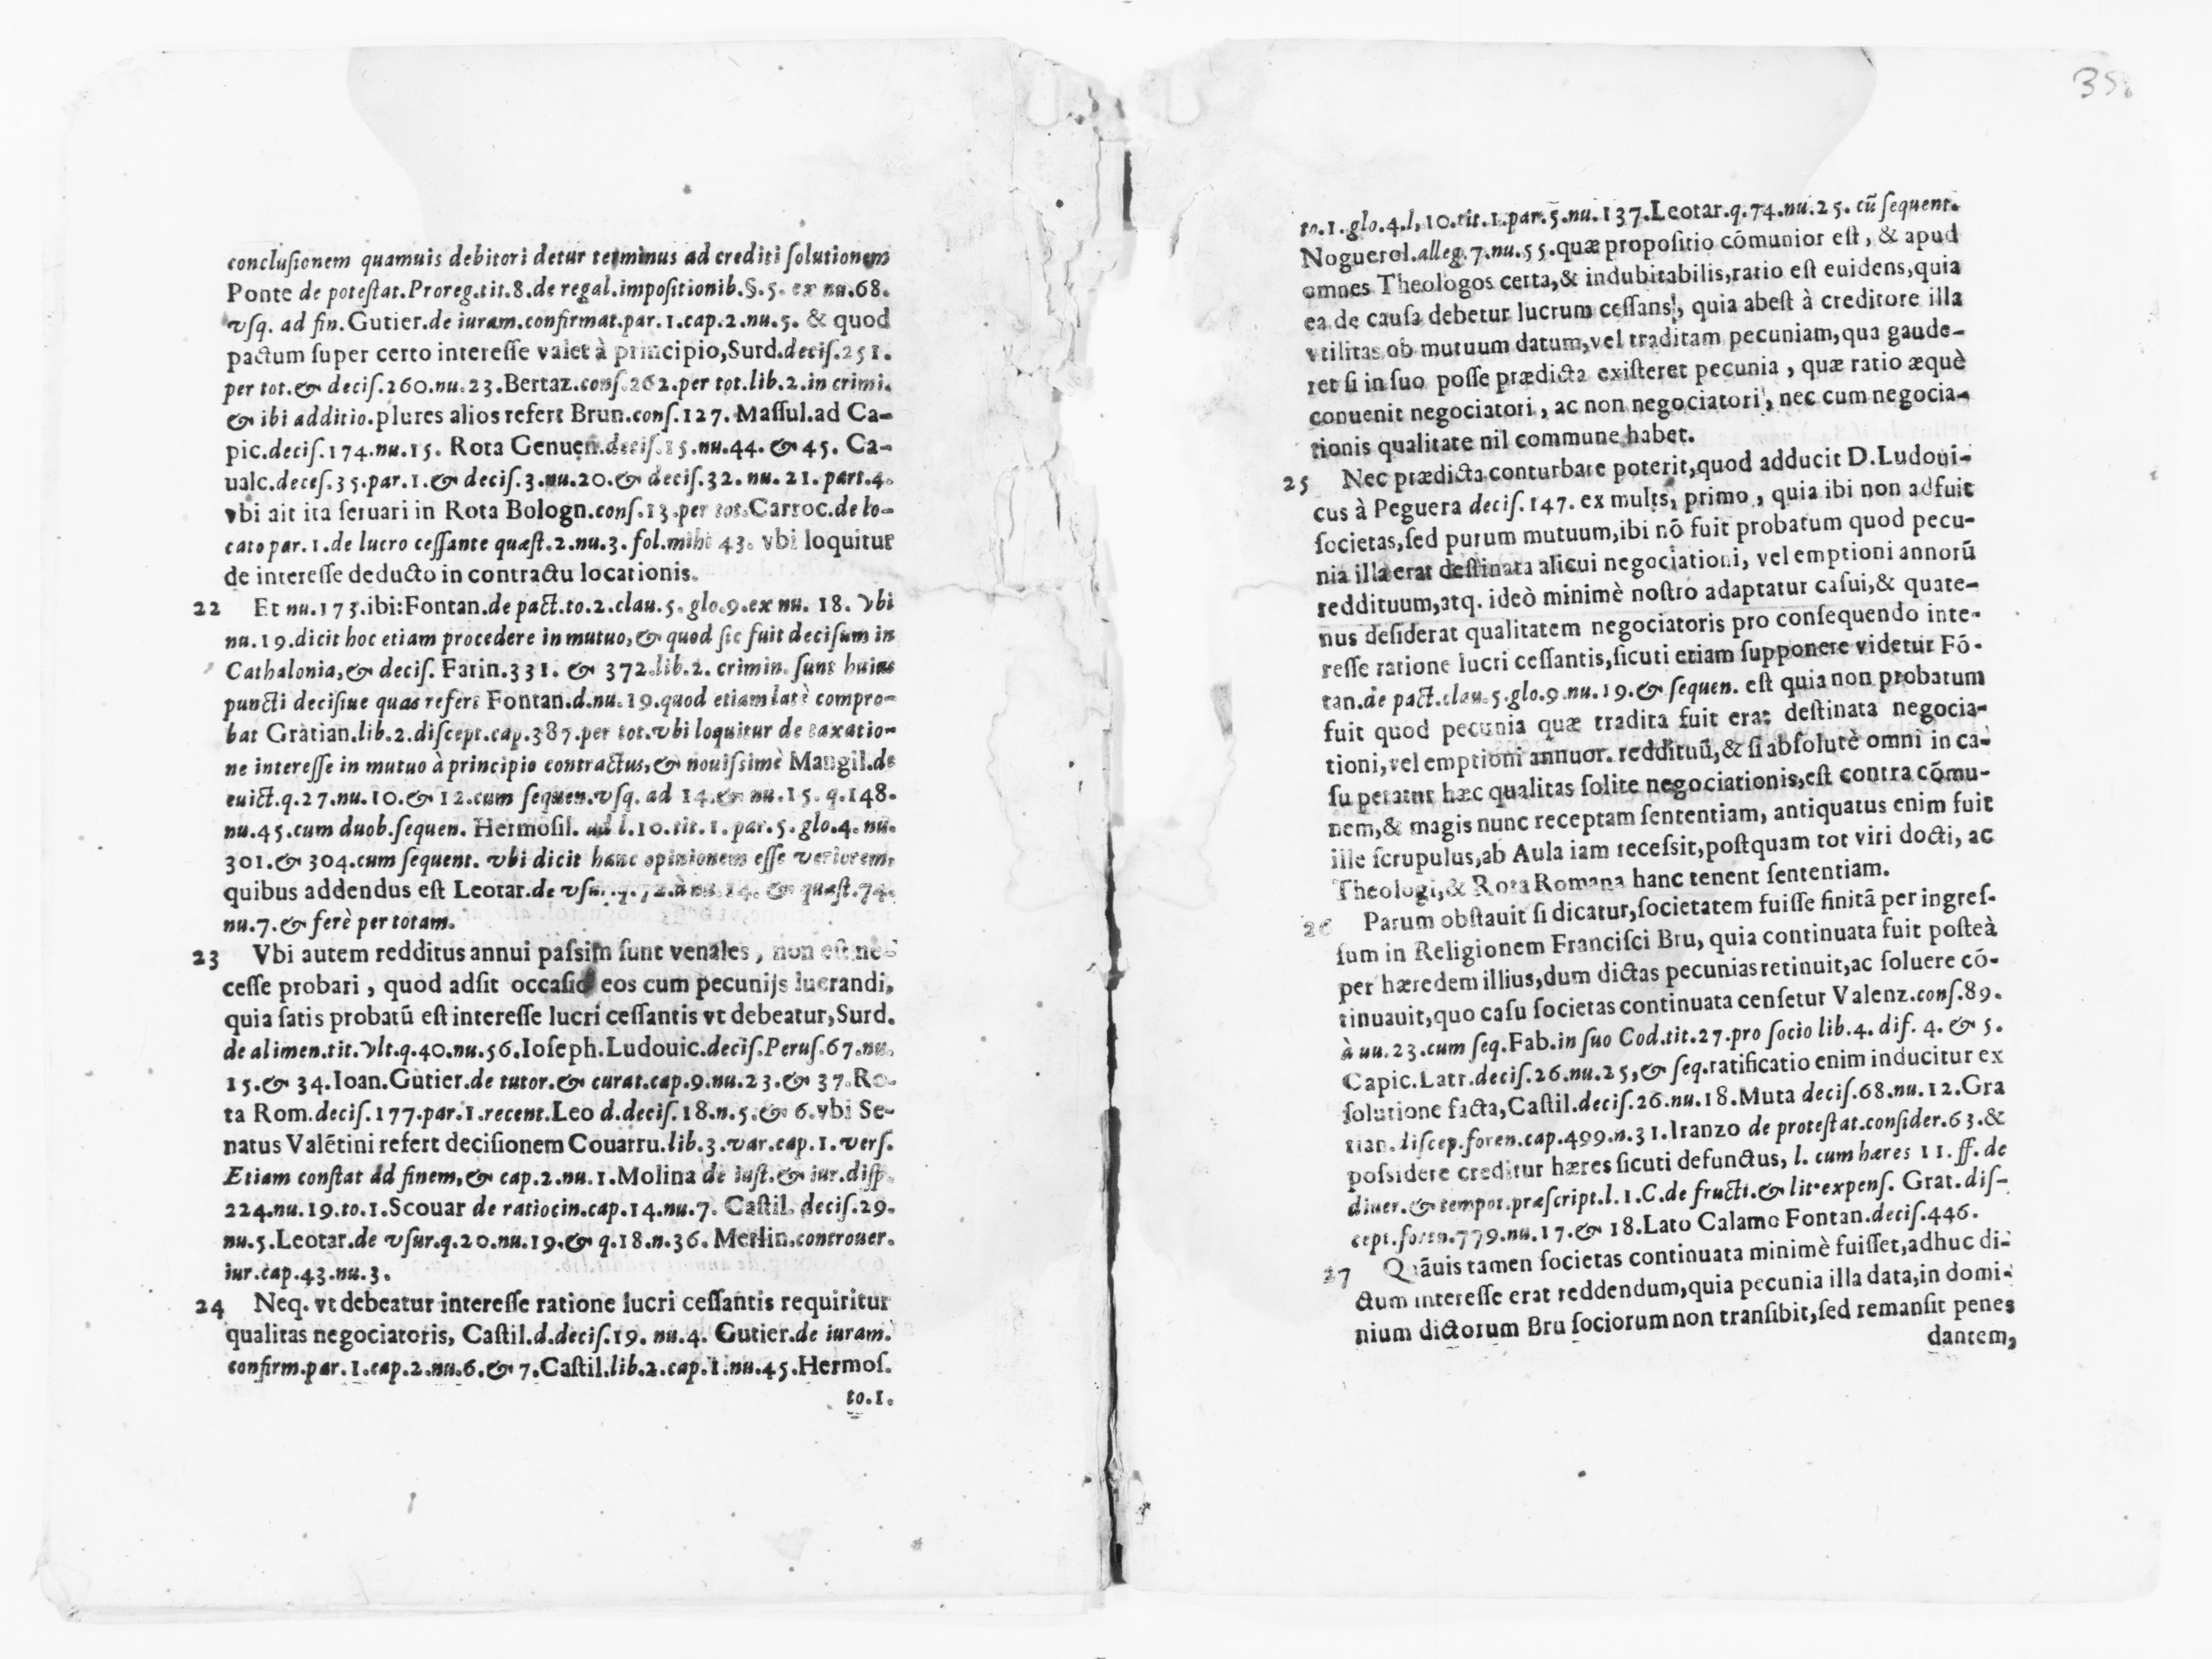 conclusionem quamuis debitori detur terminus ad crediti solutionem
Ponte de potestat.Proreg.tit.8.de regal.impositionib.§.5. ex nu.68.
vsq. ad fin.Gutier.de iuram.confirmat.par.1.cap.2.nu.5. & quod
pactum super certo interesse valet à principio,Surd.decis.251.
per tot.& decis.260.nu.23.Bertaz.cons.262.per tot.lib.2.in crimi.
& ibi additio.plures alios refert Brun.cons.127. Massul.ad Ca-
pic.decis.174.nu.15. Rota Genuen.decis.15.nu.44. & 45. Ca-
ualc.deces.35.par.1.& decis.3.nu.20.& decis.32. nu. 21. part.4.
vbi ait ita seruari in Rota Bologn.cons.13.per tot.Carroc.de lo-
cato par.1.de lucro cessante quæst.2.nu.3. fol.mihi 43. vbi loquitur
de interesse deducto in contractu locationis.
22 Et nu.173.ibi:Fontan.de pact.to.2.clau.5.glo.9.ex nu. 18. vbi
nu.19.dicit hoc etiam procedere in mutuo,& quod sic fuit decisum in
Cathalonia,& decis. Farin.331. & 372.lib.2. crimin. sunt huius
puncti decisiue quas refert Fontan.d.nu.19.quod etiam latè compro-
bat Gratian.lib.2.discept.cap.387.per tot.vbi loquitur de taxatio-
ne interesse in mutuo à principio contractus,& nouissimè Mangil.de
euict.q.27.nu.10.& 12.cum sequen.vsq. ad 14.& nu.15. q.148.
nu.45.cum duob.sequen. Hermosil. ad l.10.tit.1.par.5.glo.4.nu.
301.& 304.cum sequent. vbi dicit hanc opinionem esse veriorem,
quibus addendus est Leotar.de vsu. q.72.à nu.14. & quæst.74.
nu.7.& ferè per totam.
23 Vbi autem redditus annui passim sunt venales, non est ne-
cesse probari, quod adsit occasio eos cum pecunijs lucrandi,
quia satis probatū est interesse lucri cessantis vt debeatur,Surd.
de alimen.tit.vlt.q.40.nu.56.Ioseph.Ludouic.decis.Perus.67.nu.
15.& 34.Ioan.Gutier.de tutor.& curat.cap.9.nu.23.& 37.Ro-
ta Rom.decis.177.par.1.recent.Leo d.decis.18.n.5.& 6.vbi Se-
natus Valētini refert decisionem Couarru.lib.3.var.cap.1.vers.
Etiam constat ad finem,& cap.2.nu.1.Molina de iust.& iur.disp.
224.nu.19.to.1.Scouar de ratiocin.cap.14.nu.7. Castil. decis.29.
nu.5.Leotar.de vsur.q.20.nu.19.& q.18.n.36. Merlin.controuer.
iur.cap.43.nu.3.
24 Neq. vt debeatur interesse ratione lucri cessantis requiritur
qualitas negociatoris, Castil.d.decis.19. nu.4. Gutier.de iuram.
confirm.par.1.cap.2.nu.6.& 7.Castil.lib.2.cap.1.nu.45.Hermos.
to.1.
to.1.glo.4.l,10.tit.1.par.5.nu.137.Leotar.q.74.nu.25. cū sequent.
Noguerol.alleg.7.nu.55.quæ propositio cōmunior est, & apud
omnes Theologos certa,& indubitabilis,ratio est euidens,quia
ea de causa debetur lucrum cessans, quia abest à creditore illa
vtilitas ob mutuum datum,vel traditam pecuniam,qua gaude-
ret si in suo posse prædicta existeret pecunia, quæ ratio æquè
conuenit negociatori, ac non negociatori, nec cum negocia-
tionis qualitate nil commune habet.
25 Nec prædicta conturbare poterit,quod adducit D.Ludoui-
cus à Peguera decis.147. ex multis, primo, quia ibi non adfuit
societas,sed purum mutuum,ibi nō fuit probatum quod pecu-
nia illa erat destinata alicui negociationi, vel emptioni annorū
reddituum,atq. ideò minimè nostro adaptatur casui,& quate-
nus desiderat qualitatem negociatoris pro consequendo inte-
resse ratione lucri cessantis,sicuti etiam supponere videtur Fō-
tan.de pact.clau.5.glo.9.nu.19.& sequen. est quia non probatum
fuit quod pecunia quæ tradita fuit erat destinata negocia-
tioni,vel emptioni annuor. reddituū,& si absolutè omni in ca-
su petatur hæc qualitas solite negociationis,est contra cōmu-
nem,& magis nunc receptam sententiam, antiquatus enim fuit
ille scrupulus,ab Aula iam recessit,postquam tot viri docti, ac
Theologi,& Rota Romana hanc tenent sententiam.
26 Parum obstauit si dicatur,societatem fuisse finitā per ingres-
sum in Religionem Francisci Bru, quia continuata fuit posteà
per hæredem illius,dum dictas pecunias retinuit,ac soluere cō-
tinuauit,quo casu societas continuata censetur Valenz.cons.89.
à uu.23.cum seq.Fab.in suo Cod.tit.27.pro socio lib.4. dif. 4. & 5.
Capic.Latr.decis.26.nu.25,& seq.ratificatio enim inducitur ex
solutione facta,Castil.decis.26.nu.18.Muta decis.68.nu.12.Gra
tian.discep.foren.cap.499.n.31.Iranzo de protestat.consider.63.&
possidere creditur hæres sicuti defunctus, l. cum hæres 11.ff.de
diuer.& tempor.præscript.l.1.C.de fructi.& lit.expens. Grat.dis-
cept.foren.779.nu.17.& 18.Lato Calamo Fontan.decis.446.
27 Quāuis tamen societas continuata minimè fuisset,adhuc di-
ctum interesse erat reddendum,quia pecunia illa data,in domi-
nium dictorum Bru sociorum non transibit,sed remansit penes
dantem,